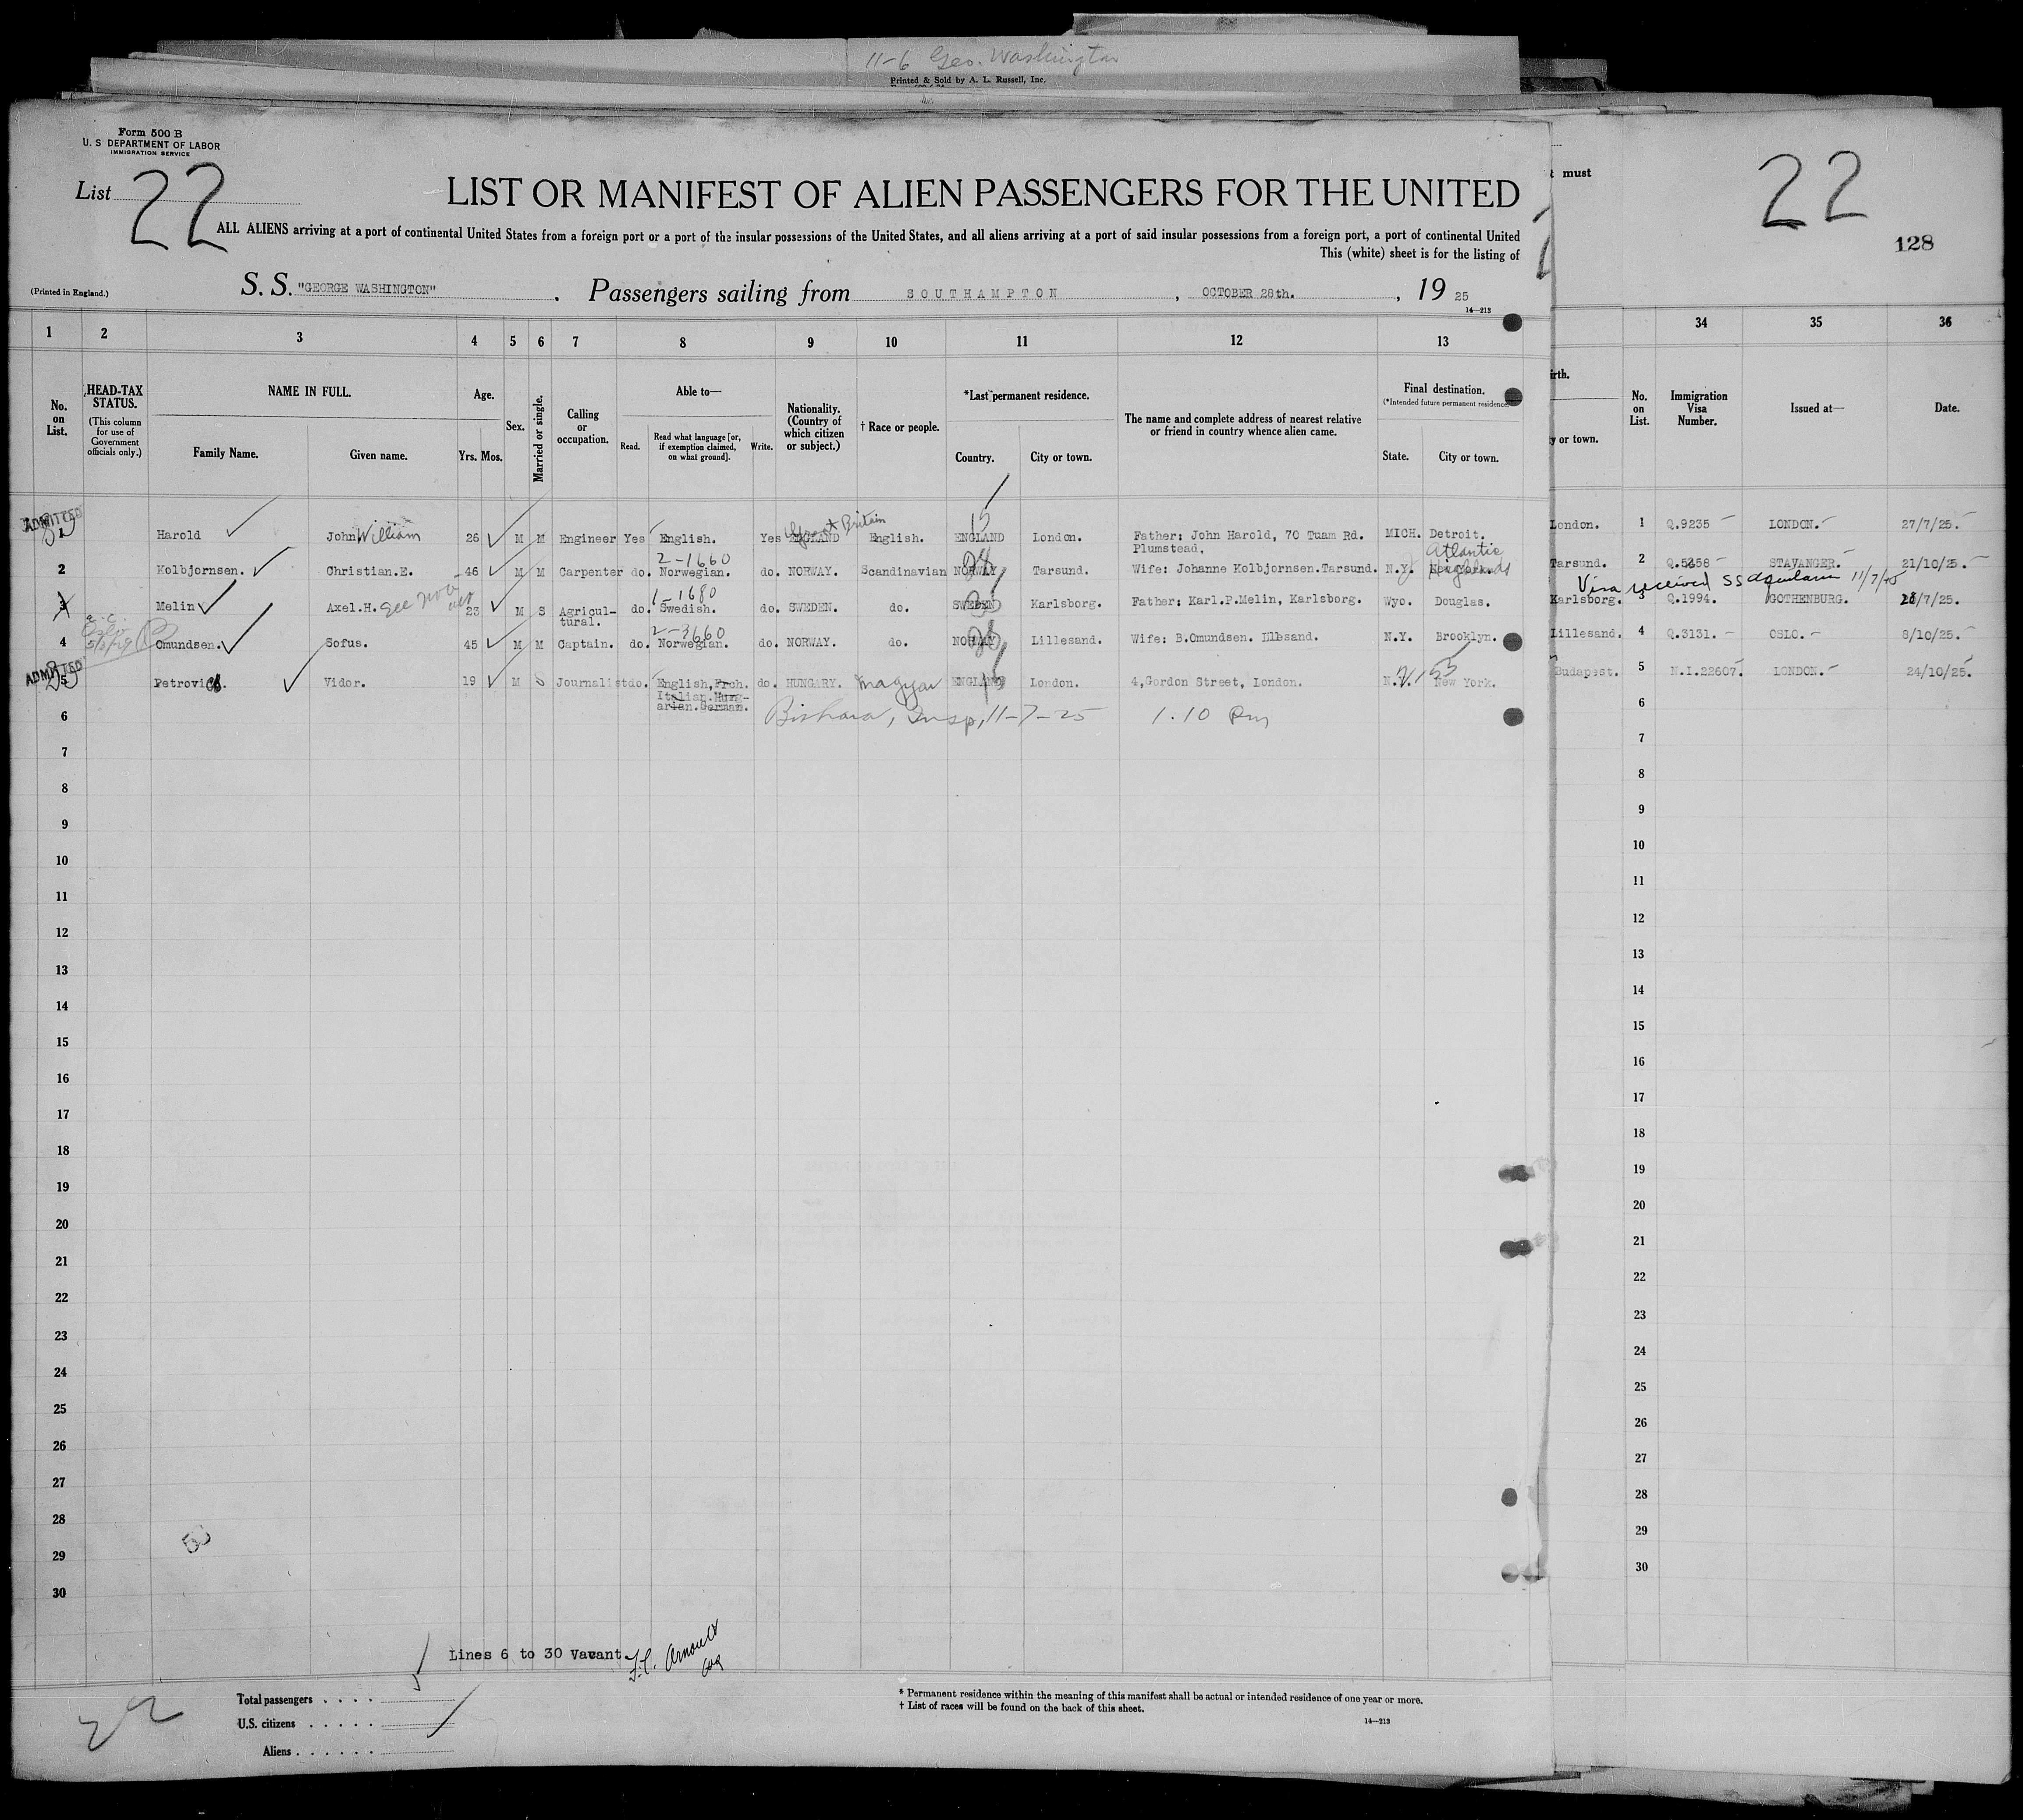 11-6 Geo. Washington
Printed & Sold by A. L. Russell, Inc.
Form 500 B
U. S DEPARTMENT OF LABOR
IMMIGRATION SERVICE
List 22
LIST OR MANIFEST OF ALIEN PASSENGERS FOR THE UNITED
ALL ALIENS arriving at a port of continental United States from a foreign port or a port of the insular possessions of the United States, and all aliens arriving at a port of said insular possessions from a foreign port, a port of continental United
This (white) sheet is for the listing of
(Printed in England.)
S. S. "GEORGE WASHINGTON" . Passengers sailing from SOUTHAMPTON , OCTOBER 28th. , 19 25
14—213
must
22
128
1 2 3 4 5 6 7 8 9 10 11 12 13
34 35 36
No. on List.
HEAD-TAX STATUS.
(This column for use of Government officials only.)
NAME IN FULL.
Family Name. Given name.
Age.
Yrs. Mos.
Sex.
Married or single.
Calling or occupation.
Able to—
Read. Read what language [or, if exemption claimed, on what ground]. Write.
Nationality. (Country of which citizen or subject.)
† Race or people.
*Last permanent residence.
Country. City or town.
The name and complete address of nearest relative or friend in country whence alien came.
Final destination.
(*Intended future permanent residence.)
State. City or town.
irth.
y or town.
No. on List.
Immigration Visa Number.
Issued at—
Date.
ADMITTED
1 Harold John William 26 M M Engineer Yes English. Yes ENGLAND Great Britain English. ENGLAND 15 London. Father: John Harold, 70 Tuam Rd. Plumstead. MICH. Detroit. London. 1 Q.9235 LONDON. 27/7/25.
2-1660
2 Kolbjornsen. Christian.E. 46 M M Carpenter do. Norwegian. do. NORWAY. Scandinavian NORWAY Tarsund. Wife: Johanne Kolbjornsen.Tarsund. N.Y. Atlantic Highlands Tarsund. 2 Q.5258 STAVANGER. 21/10/25.
Visa received SS Aquitania 11/7/25
1-1680
3 Melin Axel.H. see 23 M S Agricultural. do. Swedish. do. SWEDEN. do. SWEDEN Karlsborg. Father: Karl.P.Melin, Karlsborg. Wyo. Douglas. Karlsborg. 3 Q.1994. GOTHENBURG. 28/7/25.
2-3660
4 Omundsen. Sofus. 45 M M Captain. do. Norwegian. do. NORWAY. do. NORWAY 26 Lillesand. Wife: B.Omundsen. Illbsand. N.Y. Brooklyn. Lillesand. 4 Q.3131. OSLO. 8/10/25.
ADMITTED
5 Petrovich. Vidor. 19 M S Journalist do. English, Frch. Italian. Hungarian. German. do. HUNGARY. Magyar ENGLAND 15 London. 4, Gordon Street, London. N.Y. New York. Budapest. 5 N.I.22607. LONDON. 24/10/25.
6 Bishara, Insp, 11-7-25 1.10 Pm 6
7 7
8 8
9 9
10 10
11 11
12 12
13 13
14 14
15 15
16 16
17 17
18 18
19 19
20 20
21 21
22 22
23 23
24 24
25 25
26 26
27 27
28 28
29 29
30 30
Lines 6 to 30 Vacant. J.C. Arnoult
Total passengers . . . . 5
U.S. citizens . . . . .
Aliens . . . . . .
22
* Permanent residence within the meaning of this manifest shall be actual or intended residence of one year or more.
† List of races will be found on the back of this sheet.
14—213